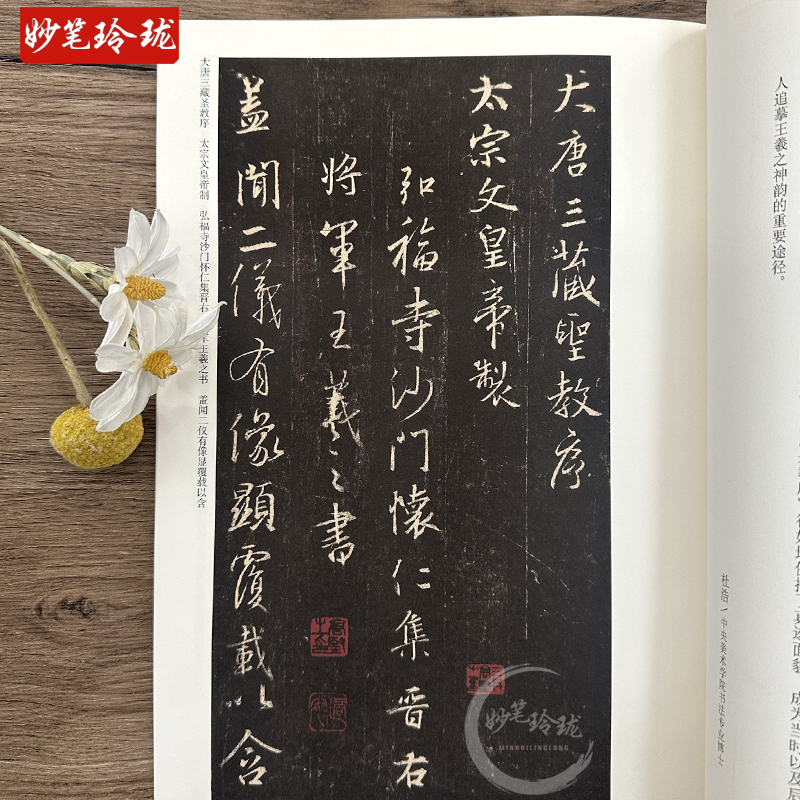 妙笔玲珑
人追摹王羲之神韵的重要途径。
杜浩/中央美术学院书法专业博士
大唐三藏聖教序
太宗文皇帝製
弘福寺沙门懷仁集晋右
将軍王羲之書
盖聞二儀有像顯覆載以含
大唐三藏圣教序 太宗文皇帝制 弘福寺沙门怀仁集晋右 军王羲之书 盖闻二仪有像显覆载以含
妙笔玲珑
MIAOBILINGLONG